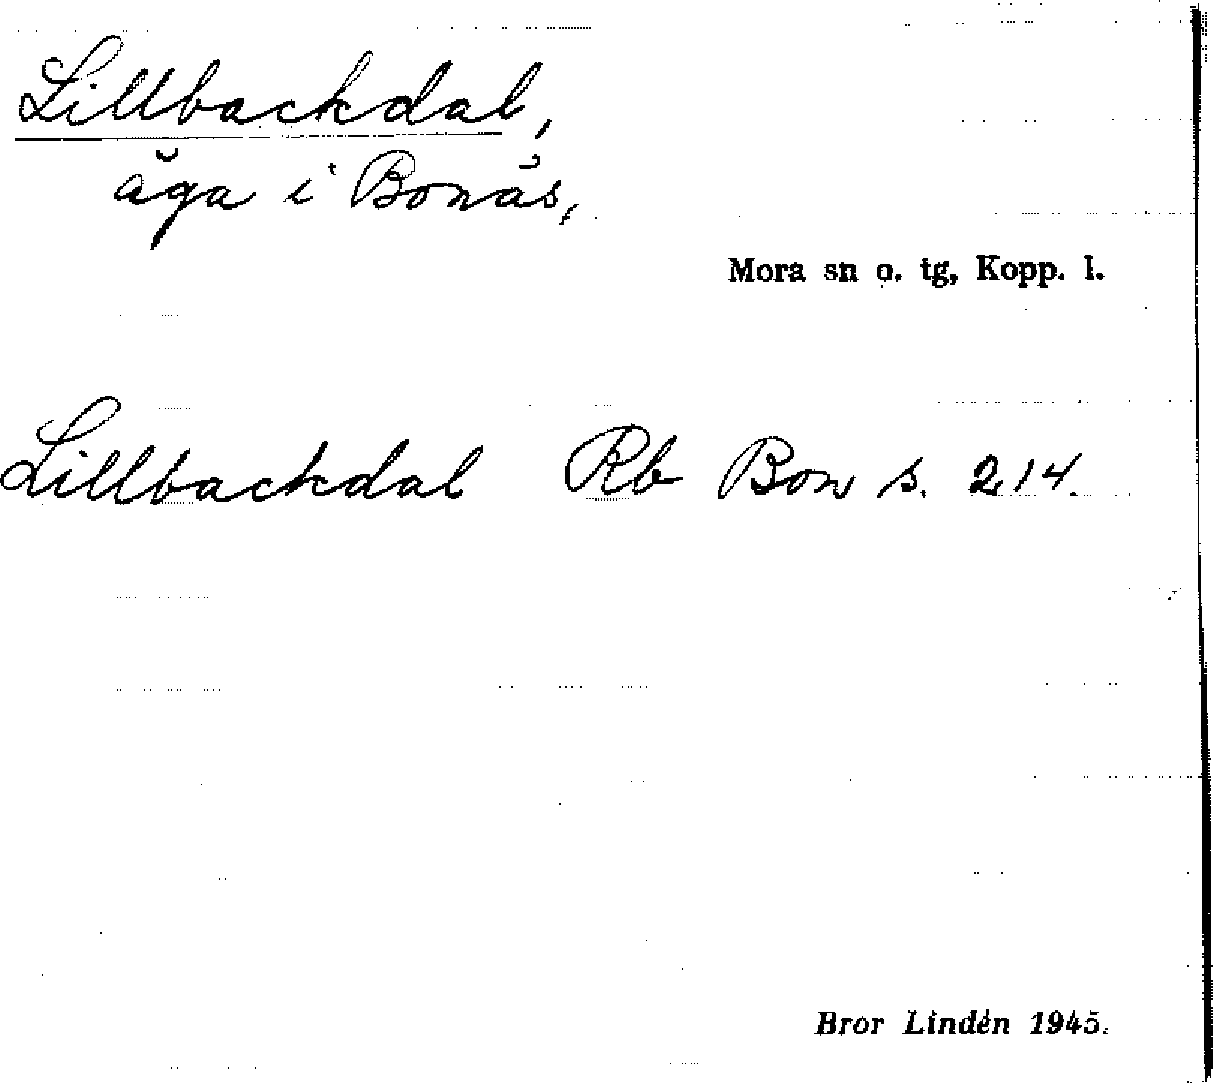 Lillbackdal,
äga i Bonäs,
Mora sn o. tg, Kopp. l.
Lillbackdal Rb Bon s. 214.
Bror Lindén 1945.